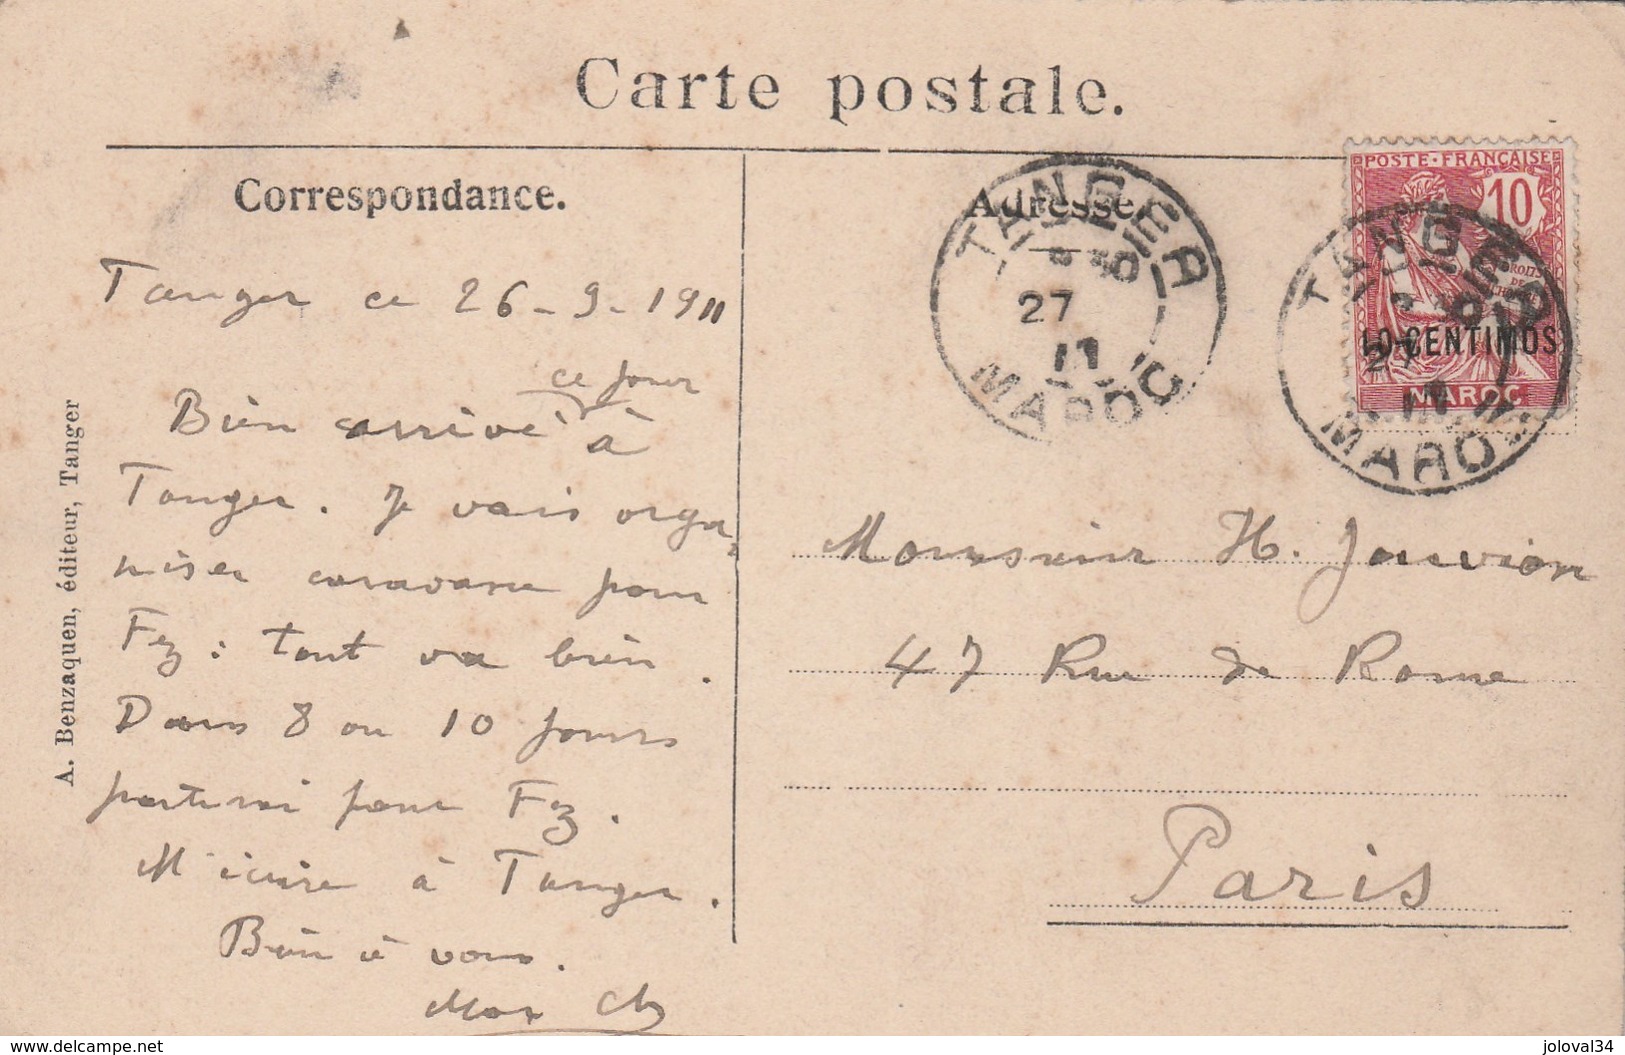 Carte postale.
Correspondance.
Tanger ce 26-9-1911
ce jour
Bien arrivé à
Tanger. Je vais orga-
niser caravane pour
Fez : tout va bien.
Dans 8 ou 10 jours
partirai pour Fez.
M'écrire à Tanger.
Bien à vous.
Max
A. Benzaquen, éditeur, Tanger
Adresse
TANGER
27
11
MAROC
POSTE·FRANÇAISE
10
10 CENTIMOS
MAROC
TANGER
27
11
MAROC
Monsieur H. Jouvion
47 Rue de Rome
Paris
www.delcampe.net
joloval34